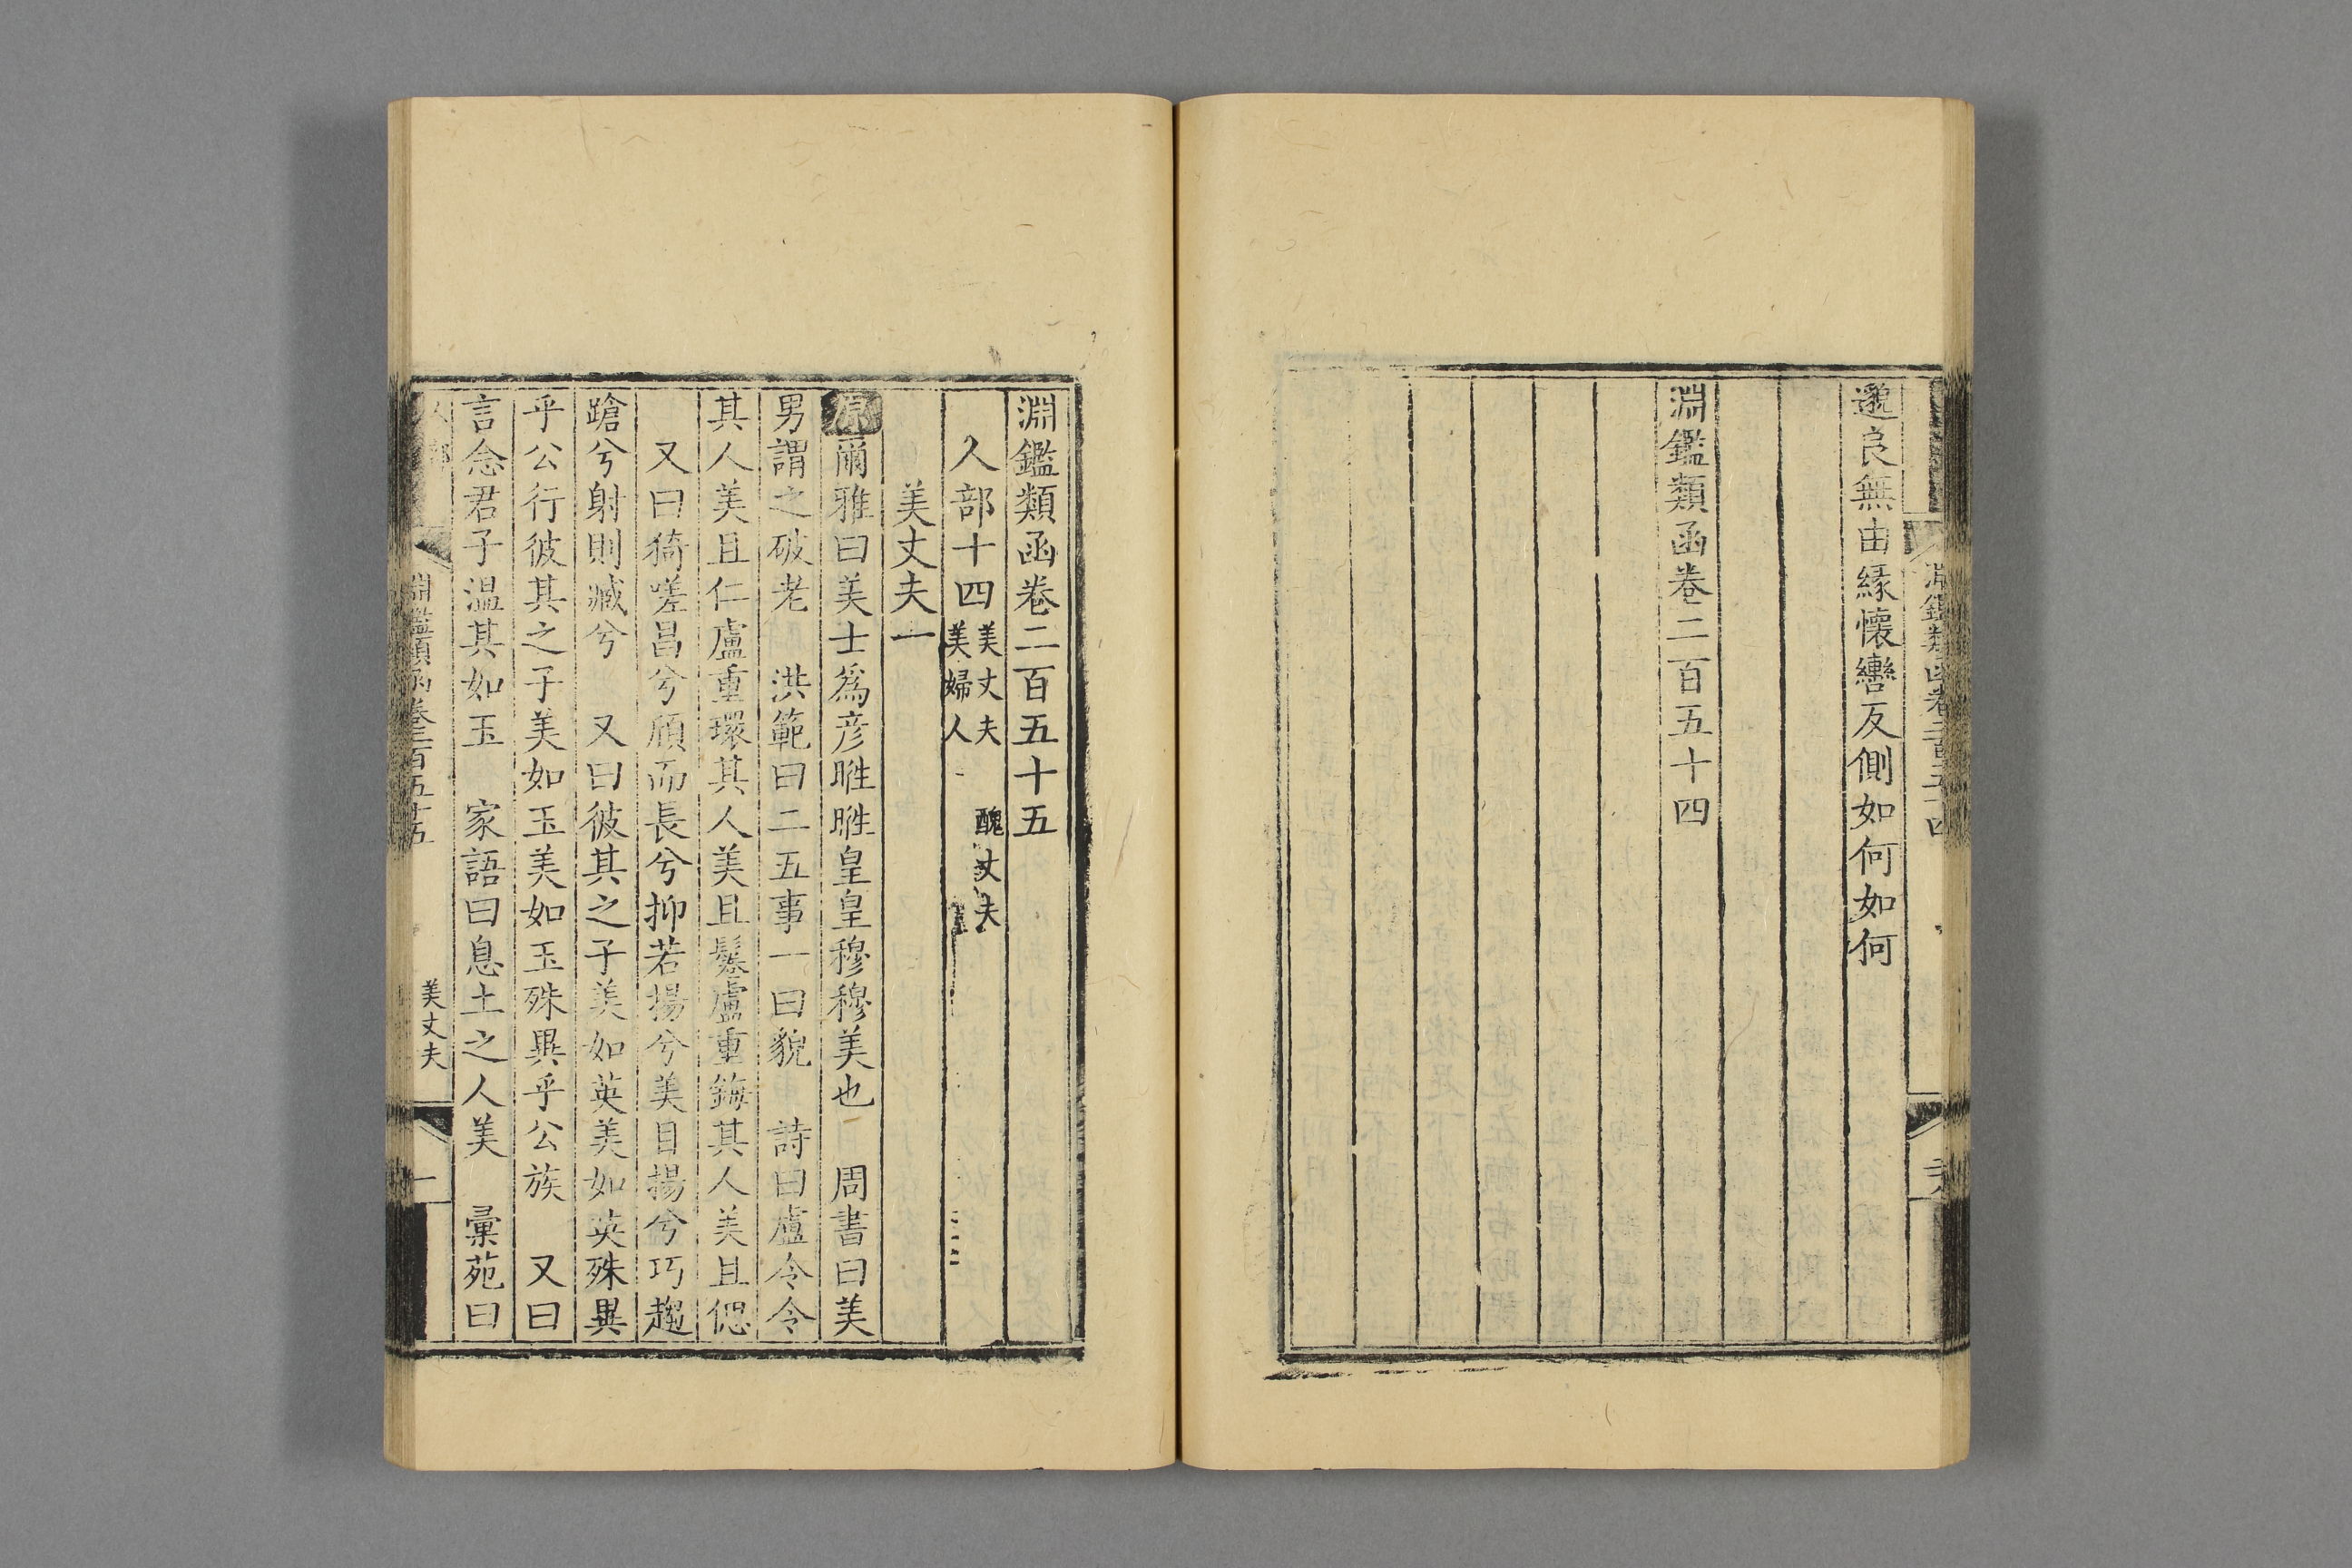 邈良無由緣懷轡反側如何如何
淵鑑類函卷二百五十四
淵鑑類函卷二百五十五
人部十四 美丈夫 醜丈夫
美婦人
美丈夫一
原爾雅曰美士爲彦暀暀皇皇穆穆美也 周書曰美
男謂之破老 洪範曰二五事一曰貌 詩曰盧令令
其人美且仁盧重環其人美且鬈盧重鋂其人美且偲
又曰猗嗟昌兮頎而長兮抑若揚兮美目揚兮巧趨
蹌兮射則臧兮 又曰彼其之子美如英美如英殊異
乎公行彼其之子美如玉美如玉殊異乎公族 又曰
言念君子温其如玉 家語曰息土之人美 彙苑曰
淵鑑類函卷二百五十五
美丈夫
一